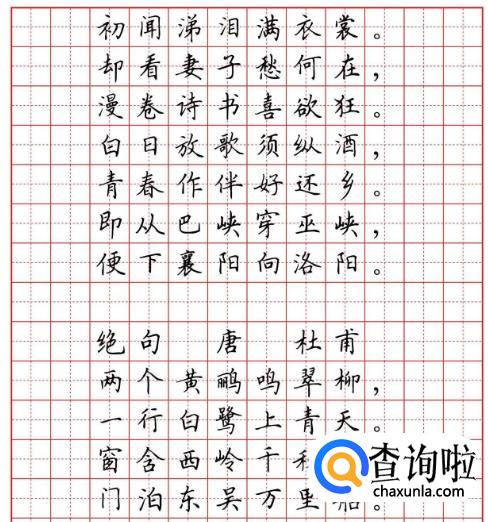 初闻涕泪满衣裳。
却看妻子愁何在，
漫卷诗书喜欲狂。
白日放歌须纵酒，
青春作伴好还乡。
即从巴峡穿巫峡，
便下襄阳向洛阳。
绝句 唐 杜甫
两个黄鹂鸣翠柳，
一行白鹭上青天。
窗含西岭千
门泊东吴万里船。
查询啦
chaxunla.com